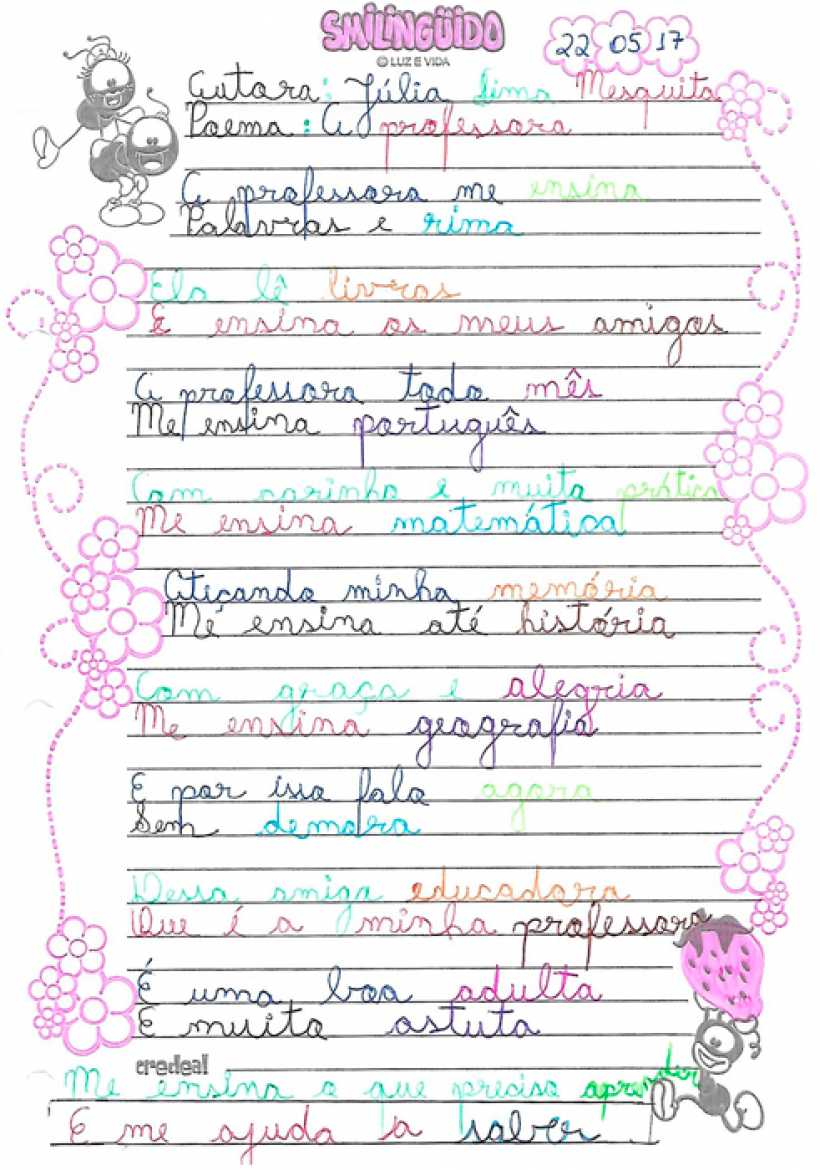 SMILINGÜIDO
© LUZ E VIDA
22 05 17
Autora: Júlia Lima Mesquita
Poema: A professora
A professora me ensina
Palavras e rima
Ela lê livros
E ensina os meus amigos
A professora todo mês
Me ensina português
Com carinho e muita prática
Me ensina matemática
Atiçando minha memória
Me ensina até história
Com graça e alegria
Me ensina geografia
E por isso falo agora
Sem demora
Dessa amiga educadora
Que é a minha professora
É uma boa adulta
E muito astuta
credeal
Me ensina o que preciso aprender
E me ajuda a saber